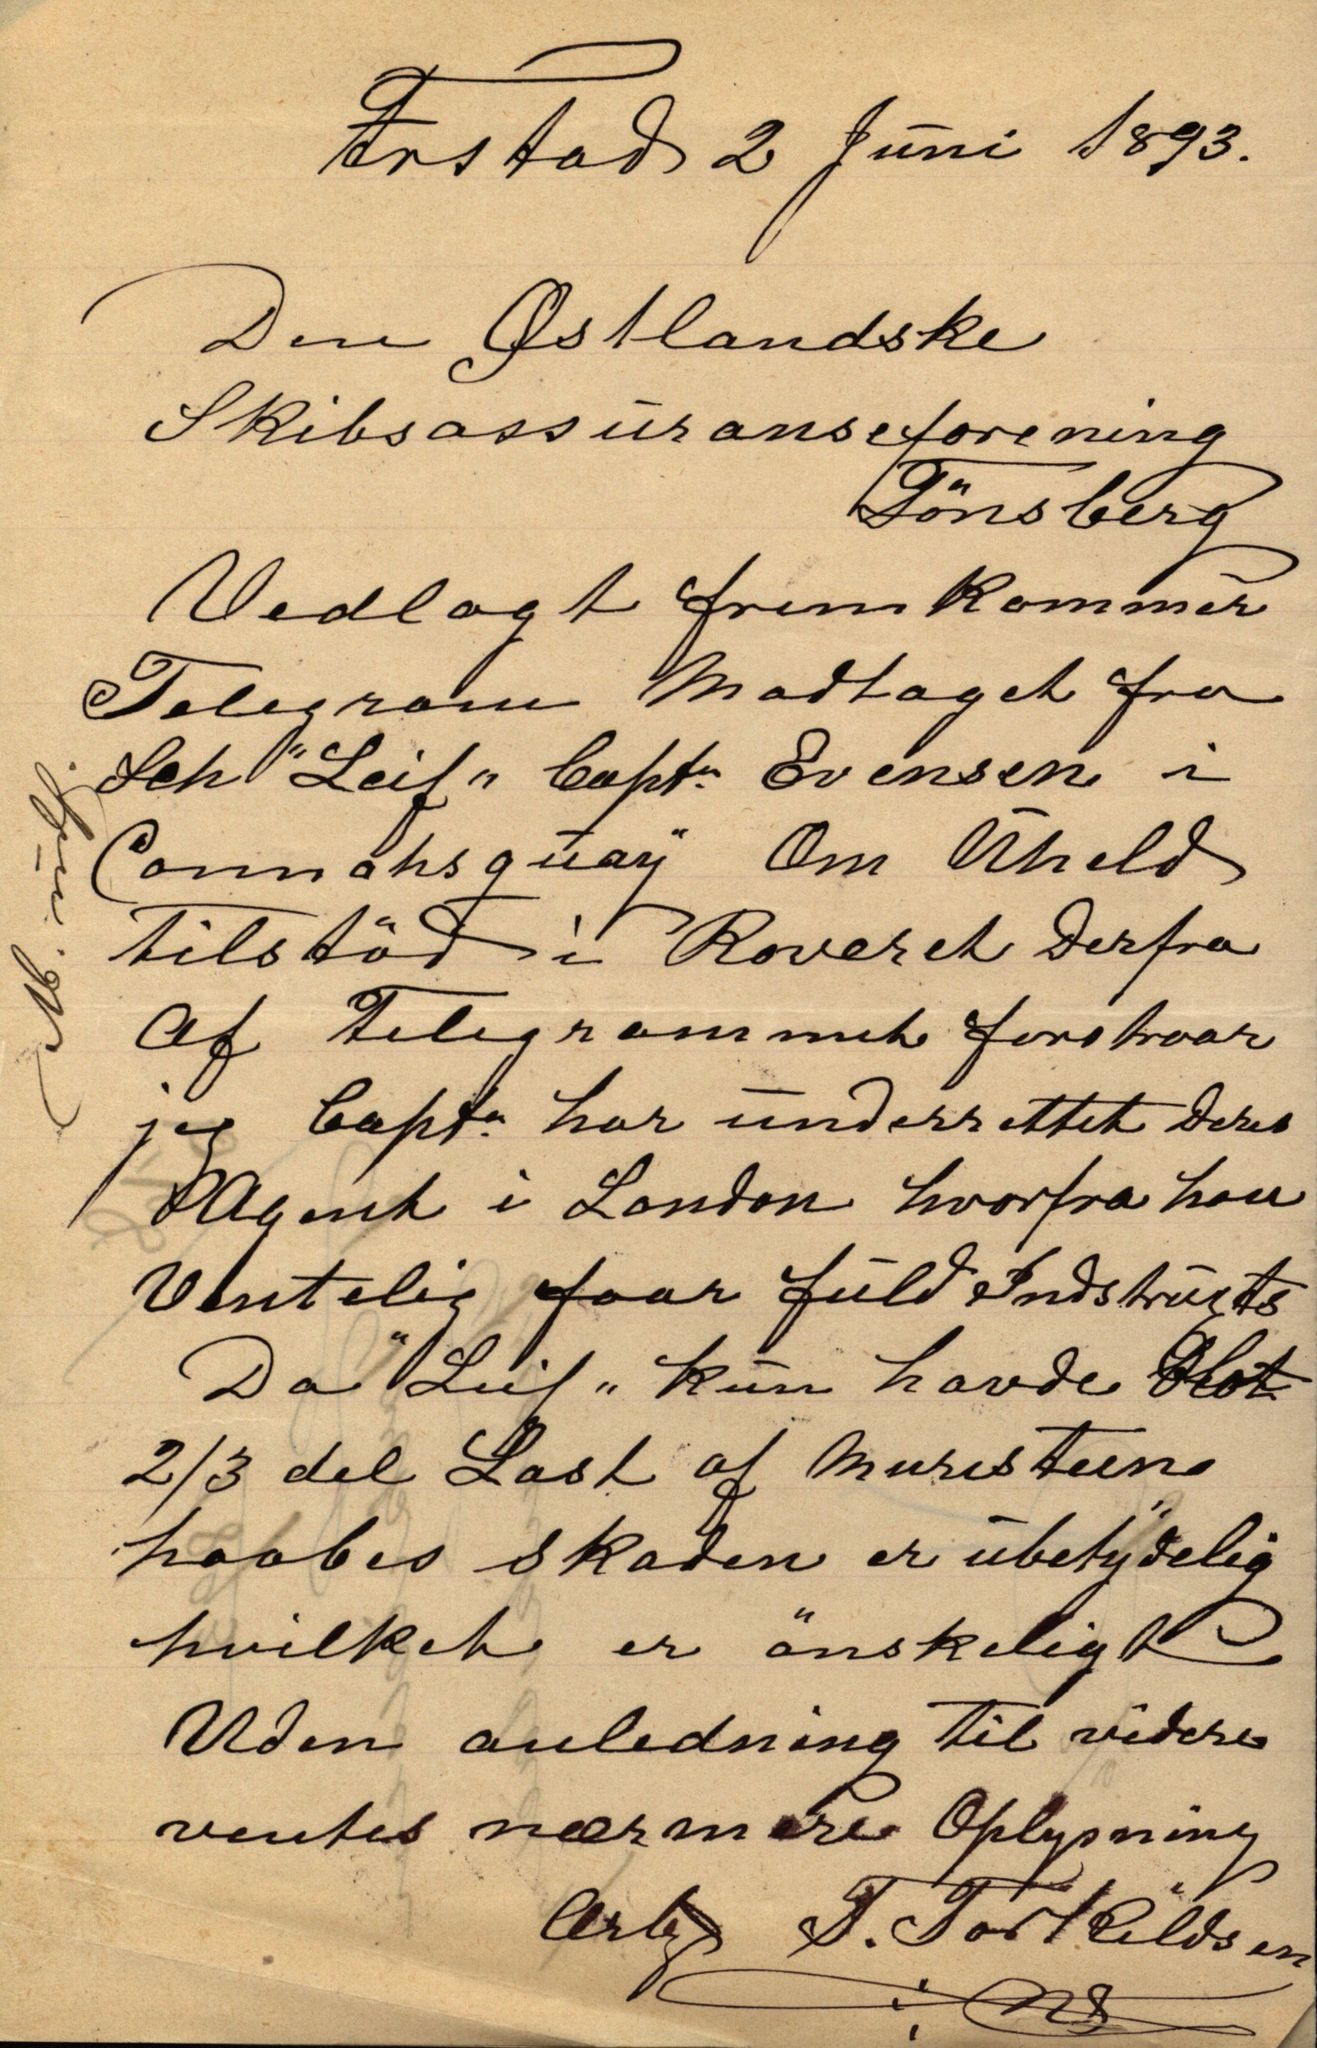 Ørstad 2 Juni 1893.
Den Østlandske
Skibsassuranseforening
Tönsberg
Vedlagt fremkommer
Telegram Modtaget fra
Sch "Leif" Captn Evensen i
Connahsquay Om Uheld
tilstöd i Roveret derfra
Af Telegrammet forstaar
jeg Captn har underrettet deres
Agent i London hvorfra han
Ventelig faar fuld Indstrugts
Da "Leif" kun havde
2/3 del Last af Muresteen
haabes skaden er ubetydelig
hvilket er önskeligt
Uden anledning til videre
ventes nærmere Oplysning
Erb T. Torkildsen